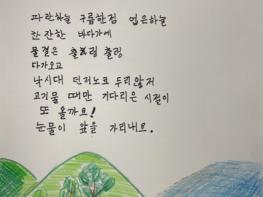 파란하늘 구름한점 업은하늘
잔잔한 바다가에
물결은 출렁 출렁
다가오고
낙시대 던저노코 우리앉저
고기물 때만 기다리은 시절이
또 올까요!
눈물이 앞을 가리내요.